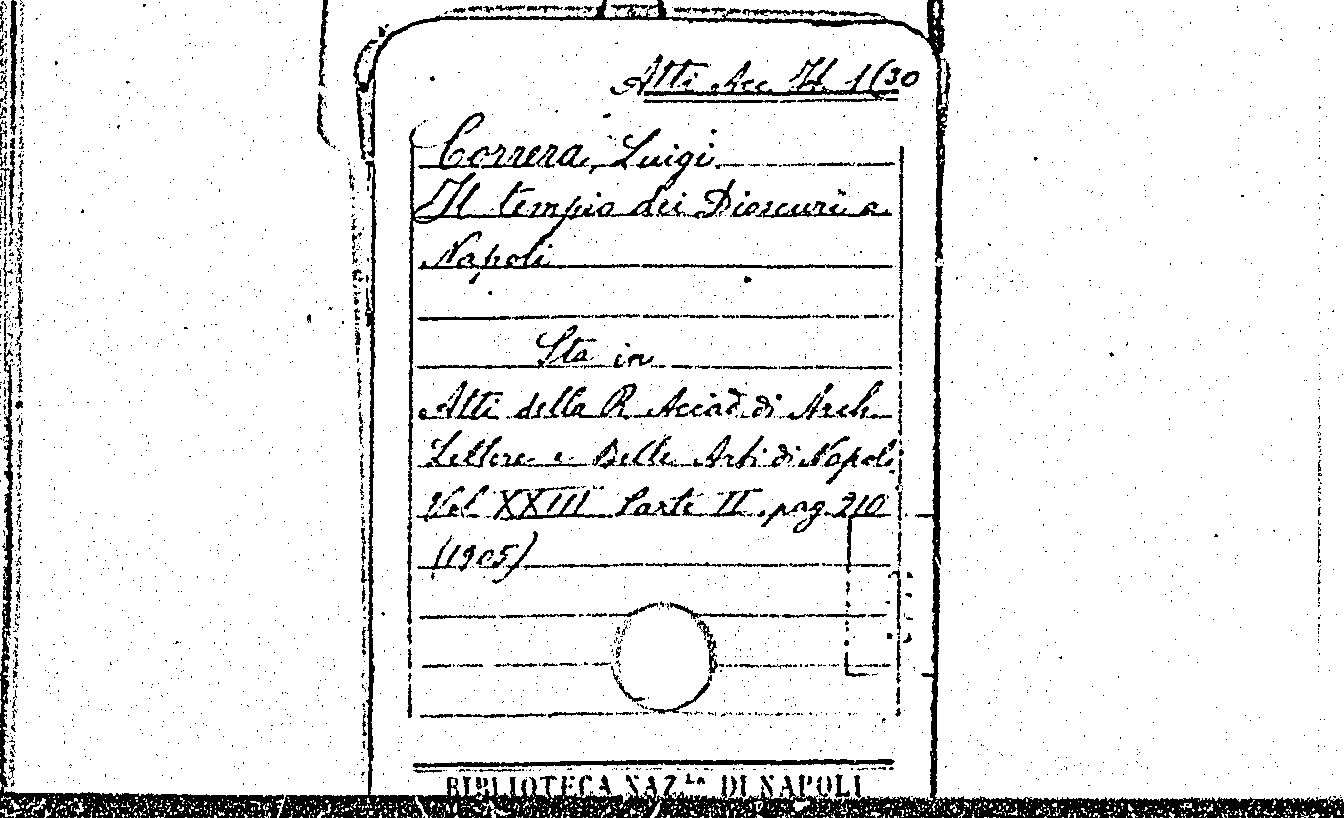 Atti Acc. It. 1(30
Correra, Luigi
Il tempio dei Dioscuri a
Napoli
Sta in
Atti della R. Accad. di Arch.
Lettere e Belle Arti di Napoli
Vol. XXIII Parte II, pag. 210
(1905)
BIBLIOTECA NAZ.le DI NAPOLI